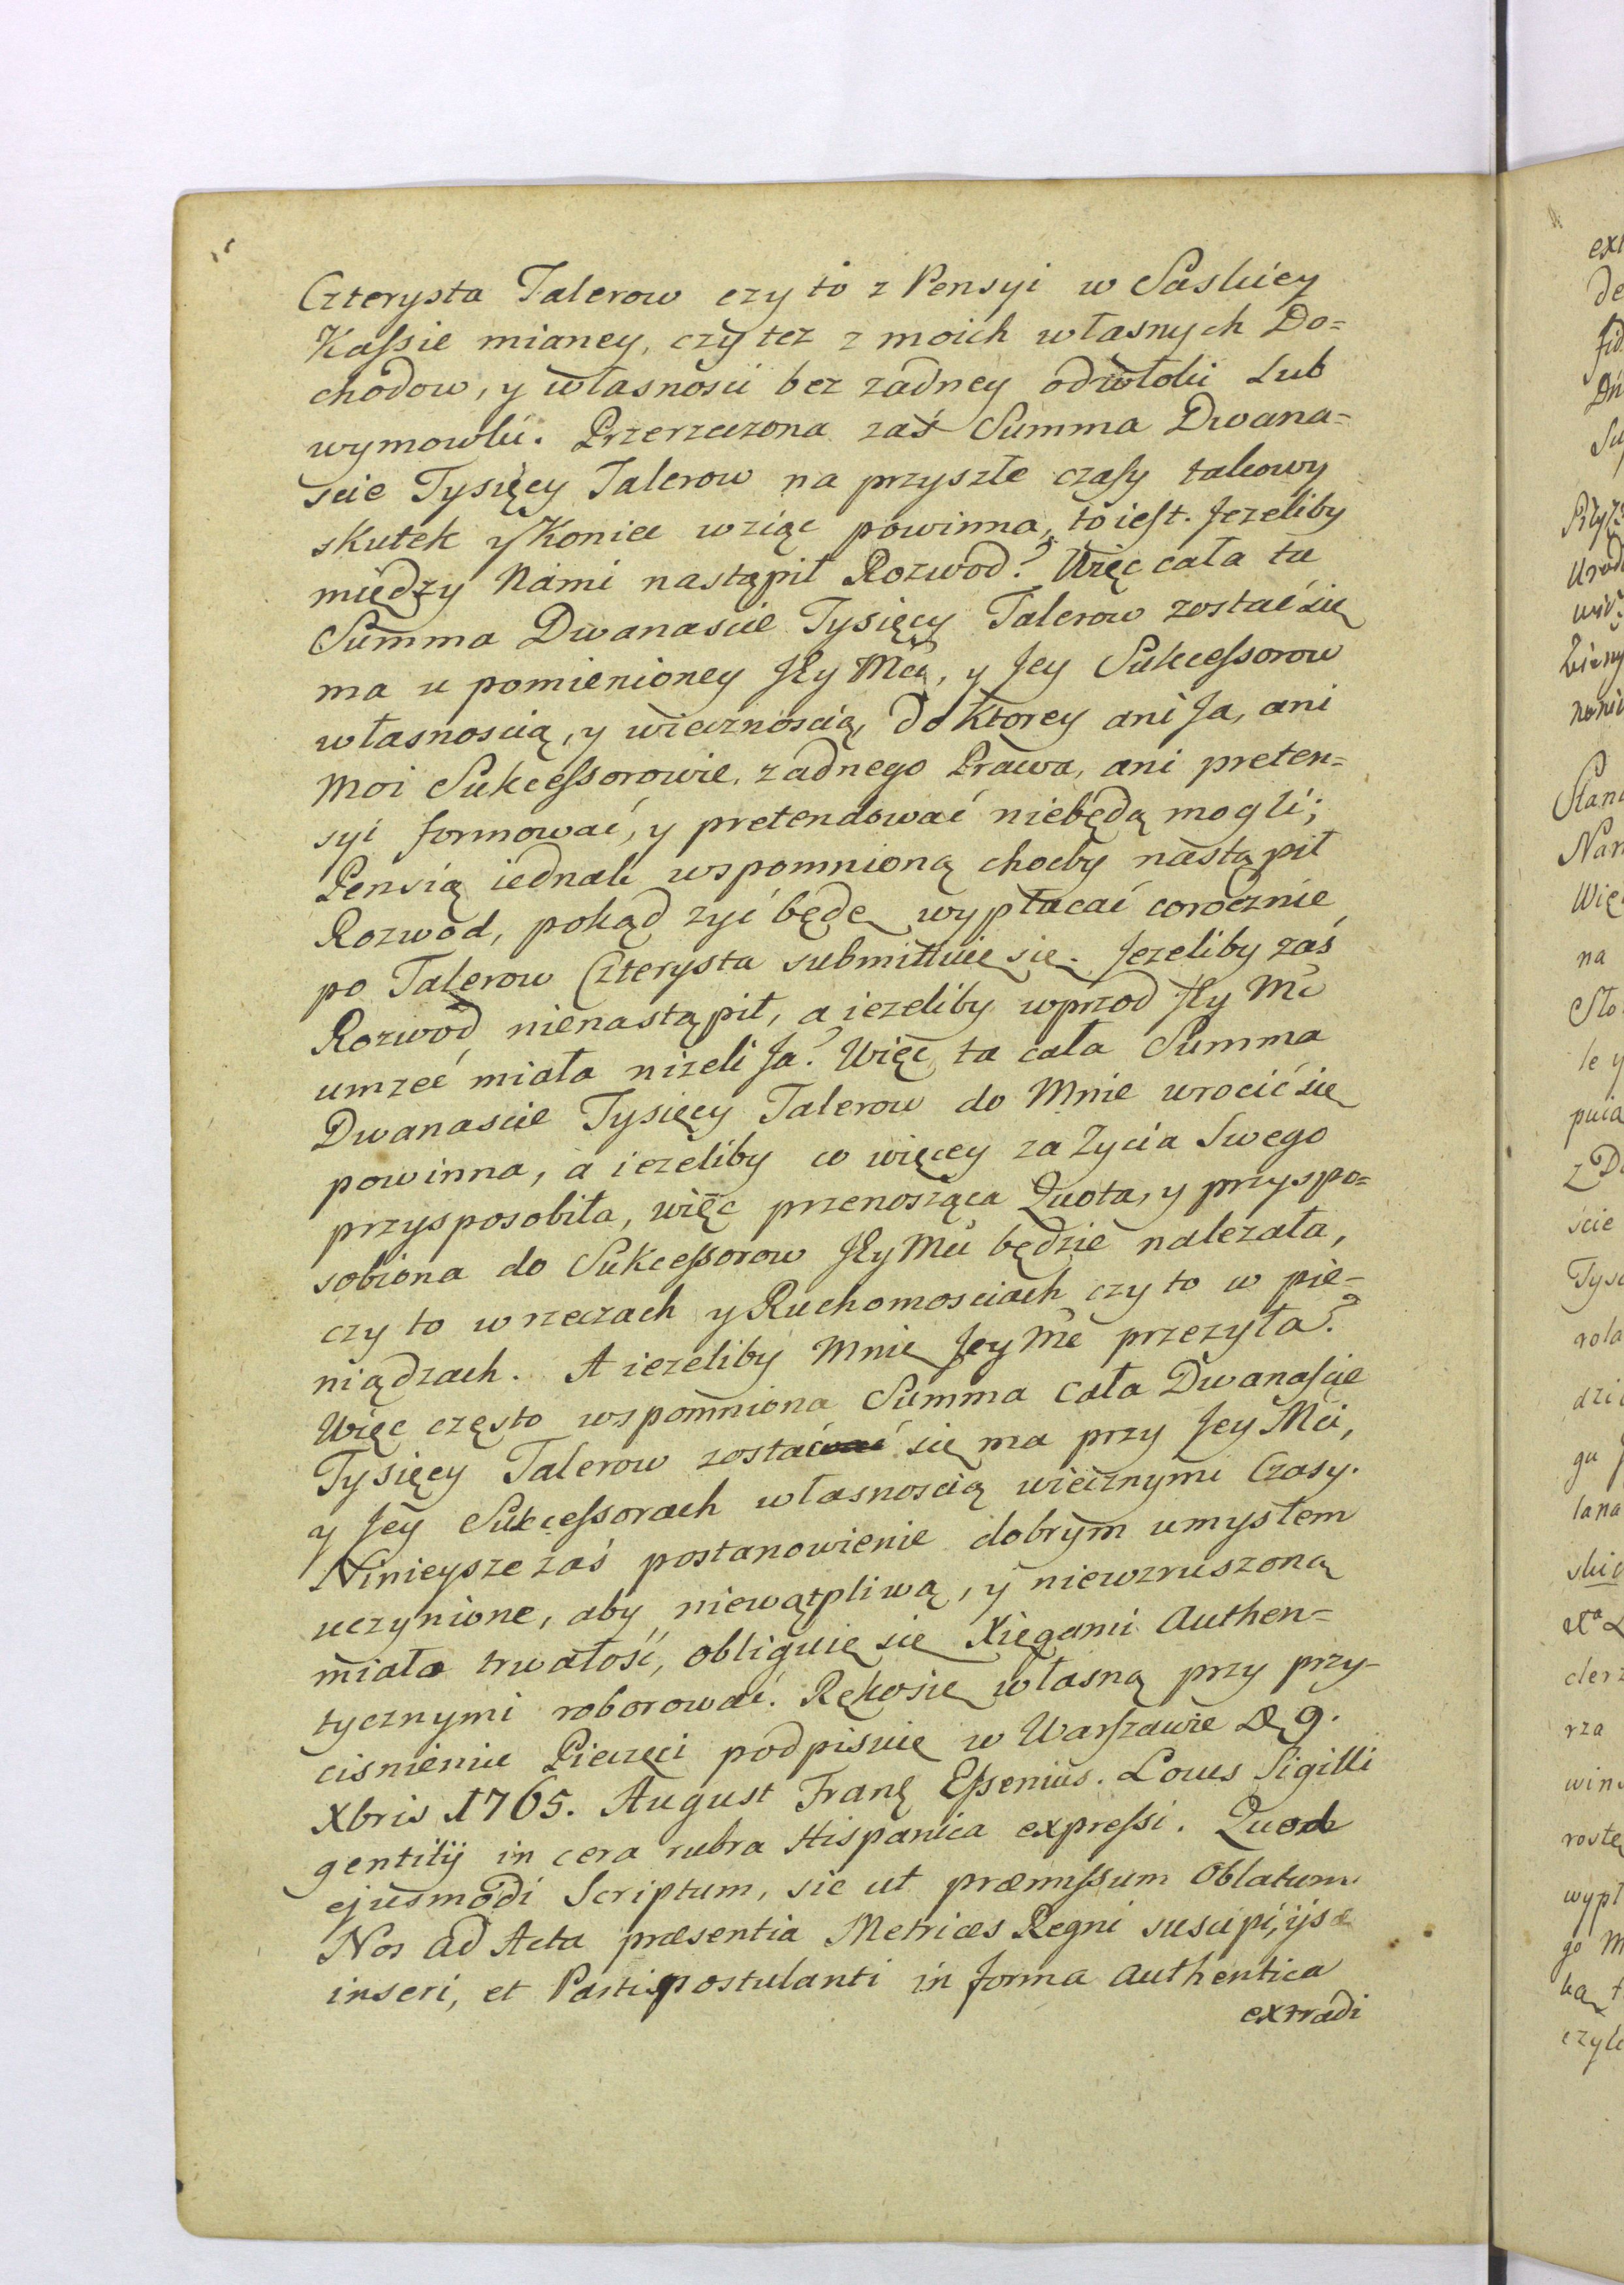 Czterysta Talerow czy to z Pensyi w Saskiey
Kassie mianey, czy tez z moich własnych Do=
chodow, y własnosci bez zadney odwłoki Lub
wymowki. Przerzeczona zaś Summa Dwana=
scie Tysięcy Talerow na przyszłe czasy takowy
skutek y Koniec wziąc powinna, to iest. Jezeliby
między Nami nastąpił Rozwod? Więc cała ta
Summa Dwanascie Tysięcy Talerow zostać się
ma u pomienioney JEy Mci, y Jey Sukcessorow
własnoscią, y wiecznoscią, do Ktorey ani Ja, ani
Moi Sukcessorowie, zadnego Prawa, ani preten=
syi formować, y pretendować niebędą mogli;
Pensią iednak wspomnioną choćby nastąpił
Rozwod, pokąd zyć będę wypłacać corocznie
po Talerow Czterysta submittuię się. Jezeliby zaś
Rozwod nienastąpił, a iezeliby wprzod JEy Mć
umrzeć miała nizeli Ja? Więc ta cała Summa
Dwanascie Tysięcy Talerow do Mnie wrocić się
powinna, a iezeliby co więcey za Zycia Swego
przysposobiła, więc przenosząca Quota, y przyspo=
sobiona do Sukcessorow JEy Mci będzie nalezała,
czy to w rzeczach y Ruchomosciach czy to w pie-
niądzach. A iezeliby Mnie Jey Mć przezyła?
Więc często wspomniona Summa cała Dwanascie
Tysięcy Talerow zostać się ma przy Jey Mci,
y Jey Sukcessorach własnoscią wiecznymi Czasy.
Ninieysze zaś postanowienie dobrym umysłem
uczynione, aby niewątpliwą, y niewzruszoną
miało trwałość, obliguię się Xięgami Authen=
tycznymi roborować. Ręko się własną przy przy-
cisnieniu Pieczęci podpisuię w Warszawie D. 9.
Xbris 1765. August Franc Essenius. Locus Sigilli
gentilij in cera rubra Hispanica expressi. Quod
ejusmodi Scriptum, sic ut præmissum Oblatum
Nos ad Acta præsentia Metrices Regni suscipi, ijsq
inseri, et Parti postulanti in forma authentica
extradi